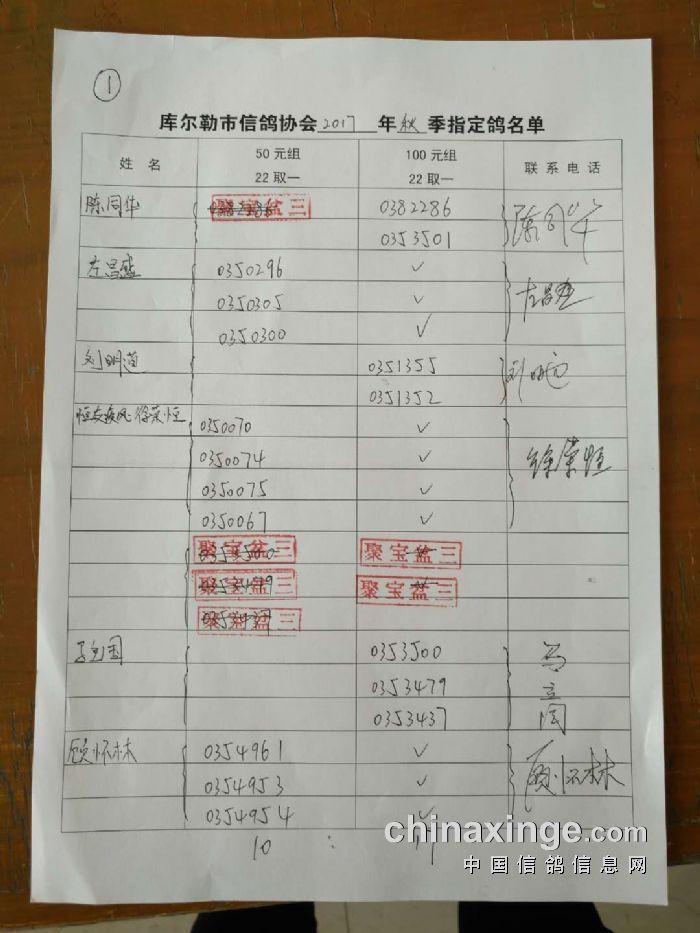 1
库尔勒市信鸽协会 2017 年 秋 季指定鸽名单
姓 名 50元组 22取一 100元组 22取一 联系电话
陈同华 聚宝盆三 0382286 陈同华
0353501
左昌盛 0350296 ✓ 左昌盛
0350305 ✓
0350300 ✓
刘明道 0351355 刘明道
0351352
徐荣恒 0350070 ✓ 徐荣恒
0350074 ✓
0350075 ✓
0350067 ✓
聚宝盆三 聚宝盆三
聚宝盆三 聚宝盆三
聚宝盆三
0353500 马
0353479 立
0353437 国
顾怀林 0354961 ✓ 顾怀林
0354953 ✓
0354954 ✓
10 :
chinaxinge.com
中国信鸽信息网